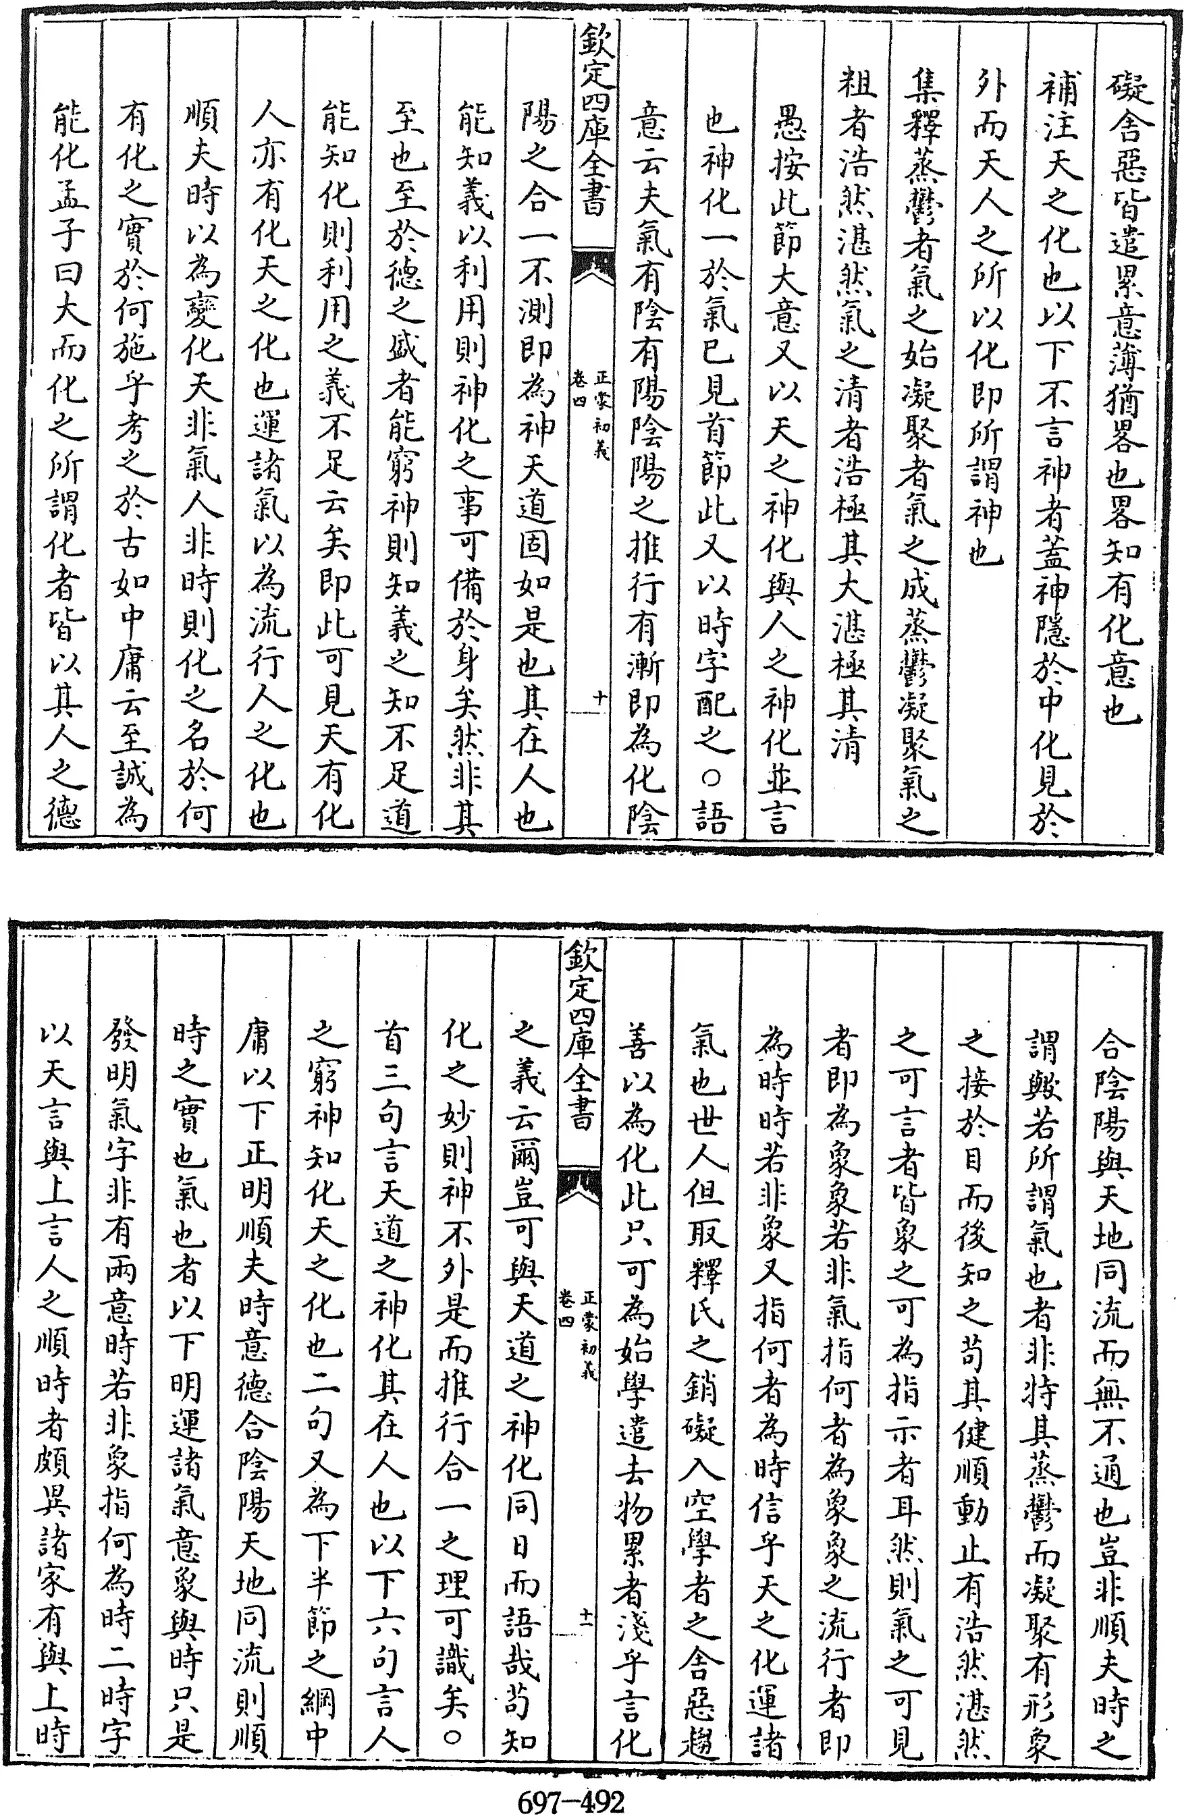 礙舍惡皆遣累意薄猶畧也畧知有化意也
補注天之化也以下不言神者蓋神隱於中化見於
外而天人之所以化即所謂神也
集釋蒸鬱者氣之始凝聚者氣之成蒸鬱凝聚氣之
粗者浩然湛然氣之清者浩極其大湛極其清
愚按此節大意又以天之神化與人之神化並言
也神化一於氣已見首節此又以時字配之○語
意云夫氣有陰有陽陰陽之推行有漸即為化陰
欽定四庫全書
正蒙初義
卷四
十
陽之合一不測即為神天道固如是也其在人也
能知義以利用則神化之事可備於身矣然非其
至也至於德之盛者能窮神則知義之知不足道
能知化則利用之義不足云矣即此可見天有化
人亦有化天之化也運諸氣以為流行人之化也
順夫時以為變化天非氣人非時則化之名於何
有化之實於何施乎考之於古如中庸云至誠為
能化孟子曰大而化之所謂化者皆以其人之德
合陰陽與天地同流而無不通也豈非順夫時之
謂歟若所謂氣也者非特其蒸鬱而凝聚有形象
之接於目而後知之苟其健順動止有浩然湛然
之可言者皆象之可為指示者耳然則氣之可見
者即為象象若非氣指何者為象象之流行者即
為時時若非象又指何者為時信乎天之化運諸
氣也世人但取釋氏之銷礙入空學者之舍惡趨
善以為化此只可為始學遣去物累者淺乎言化
欽定四庫全書
正蒙初義
卷四
十一
之義云爾豈可與天道之神化同日而語哉苟知
化之妙則神不外是而推行合一之理可識矣○
首三句言天道之神化其在人也以下六句言人
之窮神知化天之化也二句又為下半節之綱中
庸以下正明順夫時意德合陰陽天地同流則順
時之實也氣也者以下明運諸氣意象與時只是
發明氣字非有兩意時若非象指何為時二時字
以天言與上言人之順時者頗異諸家有與上時
697-492